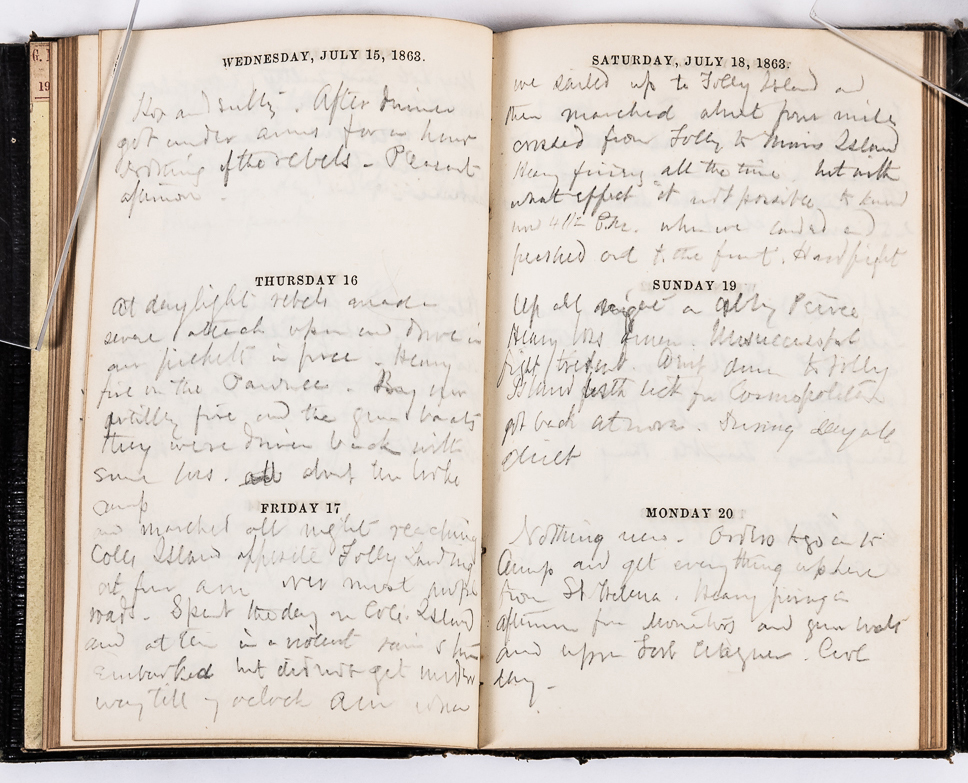 G.
19
WEDNESDAY, JULY 15, 1863.
Hot and sultry. After dinner
got under arms for an hour
of the rebels - Pleasant
afternoon.
THURSDAY 16
At daylight rebels made
severe attack upon and drove in
our pickets in force. Heavy
fire on the Pawnee. By our
artillery fire and the gun boats
they were driven back with
some loss. about ten broke
camp
FRIDAY 17
and marched all night reaching
Coles Island opposite Folly Landing
at five am over most
roads. Spent the day on Coles Island
and at ten in a violent rain storm
embarked but did not get under
way till 7 oclock am when
SATURDAY, JULY 18, 1863.
we sailed up to Folly Island and
then marched about four mile
crossed from Folly to Morris Island
Heavy firing all the time but with
what effect it not possible to know
when we landed and
pushed out to the front. Hard fight
SUNDAY 19
Up all night
Heavy loss given. Unsuccessful
fight. Went down to Folly
Island with sick for Cosmopolitan
got back at noon. During day all
quiet
MONDAY 20
Nothing new. Orders to go in to
Camp and get everything up here
from St Helena. Heavy firing in
afternoon from Monitors and gun boats
and upon Fort Wagner. Cool
day.